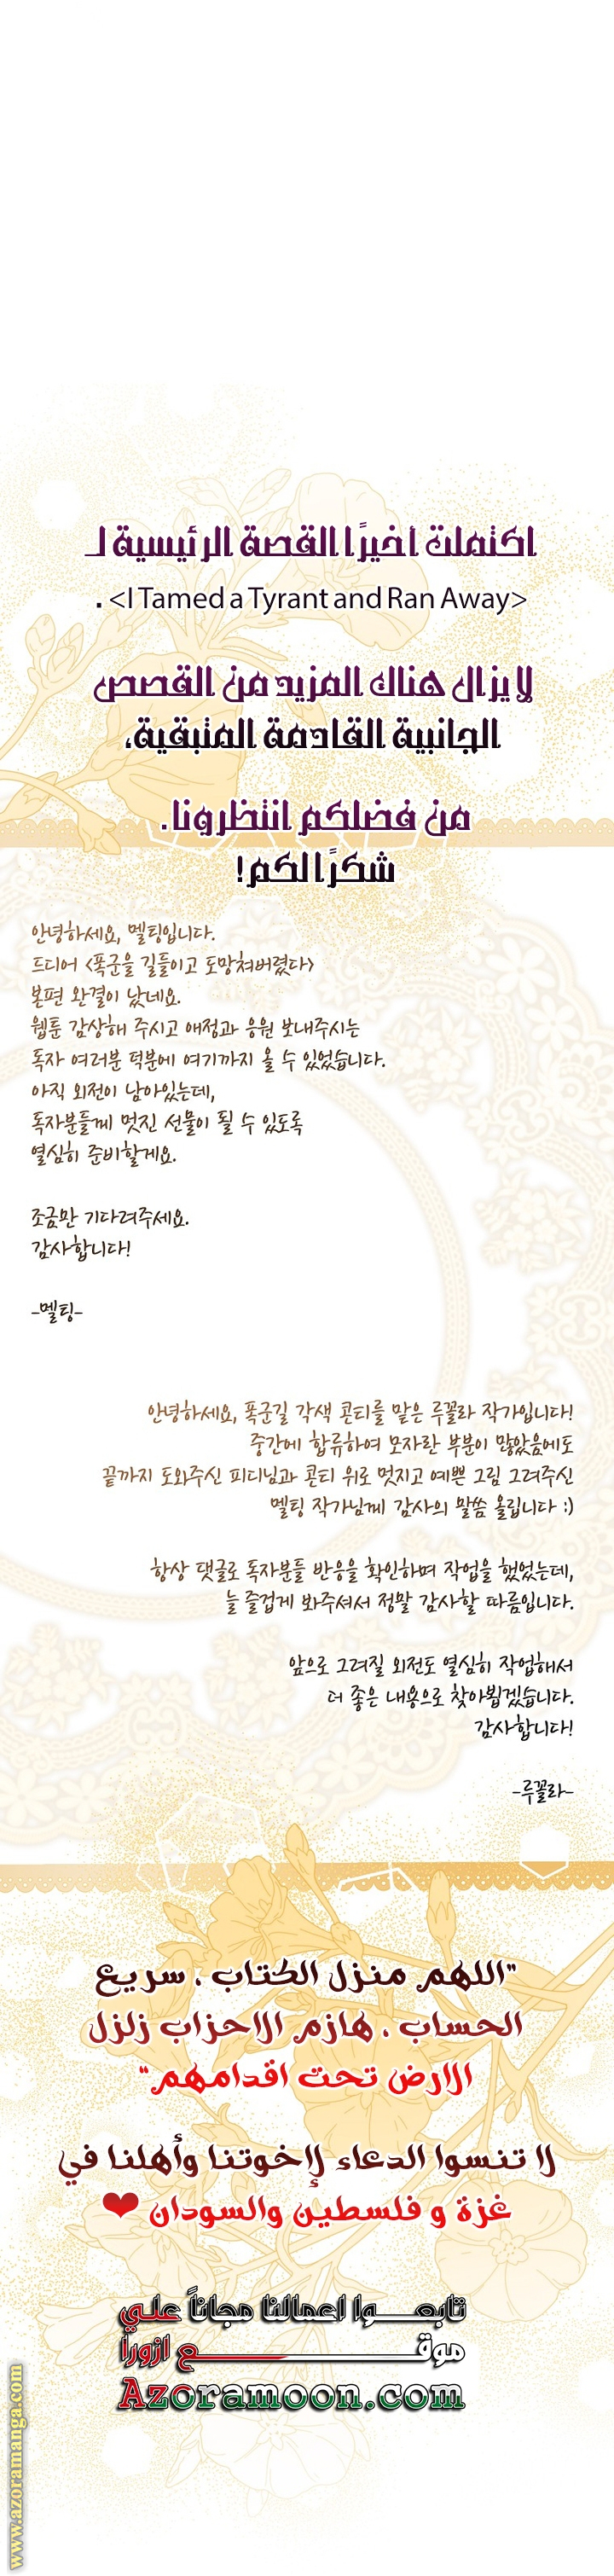 اكتملت أخيرًا القصة الرئيسية لـ
<I Tamed a Tyrant and Ran Away> .
لا يزال هناك المزيد من القصص
الجانبية القادمة المتبقية،
من فضلكم انتظرونا.
شكرًا لكم!
안녕하세요, 멜팅입니다.
드디어 <폭군을 길들이고 도망쳐버렸다>
본편 완결이 났네요.
웹툰 감상해 주시고 애정과 응원 보내주시는
독자 여러분 덕분에 여기까지 올 수 있었습니다.
아직 외전이 남아있는데,
독자분들께 멋진 선물이 될 수 있도록
열심히 준비할게요.
조금만 기다려주세요.
감사합니다!
-멜팅-
안녕하세요, 폭군길 각색 콘티를 맡은 루꼴라 작가입니다!
중간에 합류하여 모자란 부분이 많았음에도
끝까지 도와주신 피디님과 콘티 위로 멋지고 예쁜 그림 그려주신
멜팅 작가님께 감사의 말씀 올립니다 :)
항상 댓글로 독자분들 반응을 확인하며 작업을 했었는데,
늘 즐겁게 봐주셔서 정말 감사할 따름입니다.
앞으로 그려질 외전도 열심히 작업해서
더 좋은 내용으로 찾아뵙겠습니다.
감사합니다!
-루꼴라-
"اللهم منزل الكتاب ، سريع
الحساب ، هازم الاحزاب زلزل
الارض تحت اقدامهم"
لا تنسوا الدعاء لإخوتنا وأهلنا في
غزة و فلسطين والسودان ❤
تابعـــوا اعمالنا مجاناً علي
موقـــــــــــع ازورا
Azoramoon.com
www.azoramanga.com